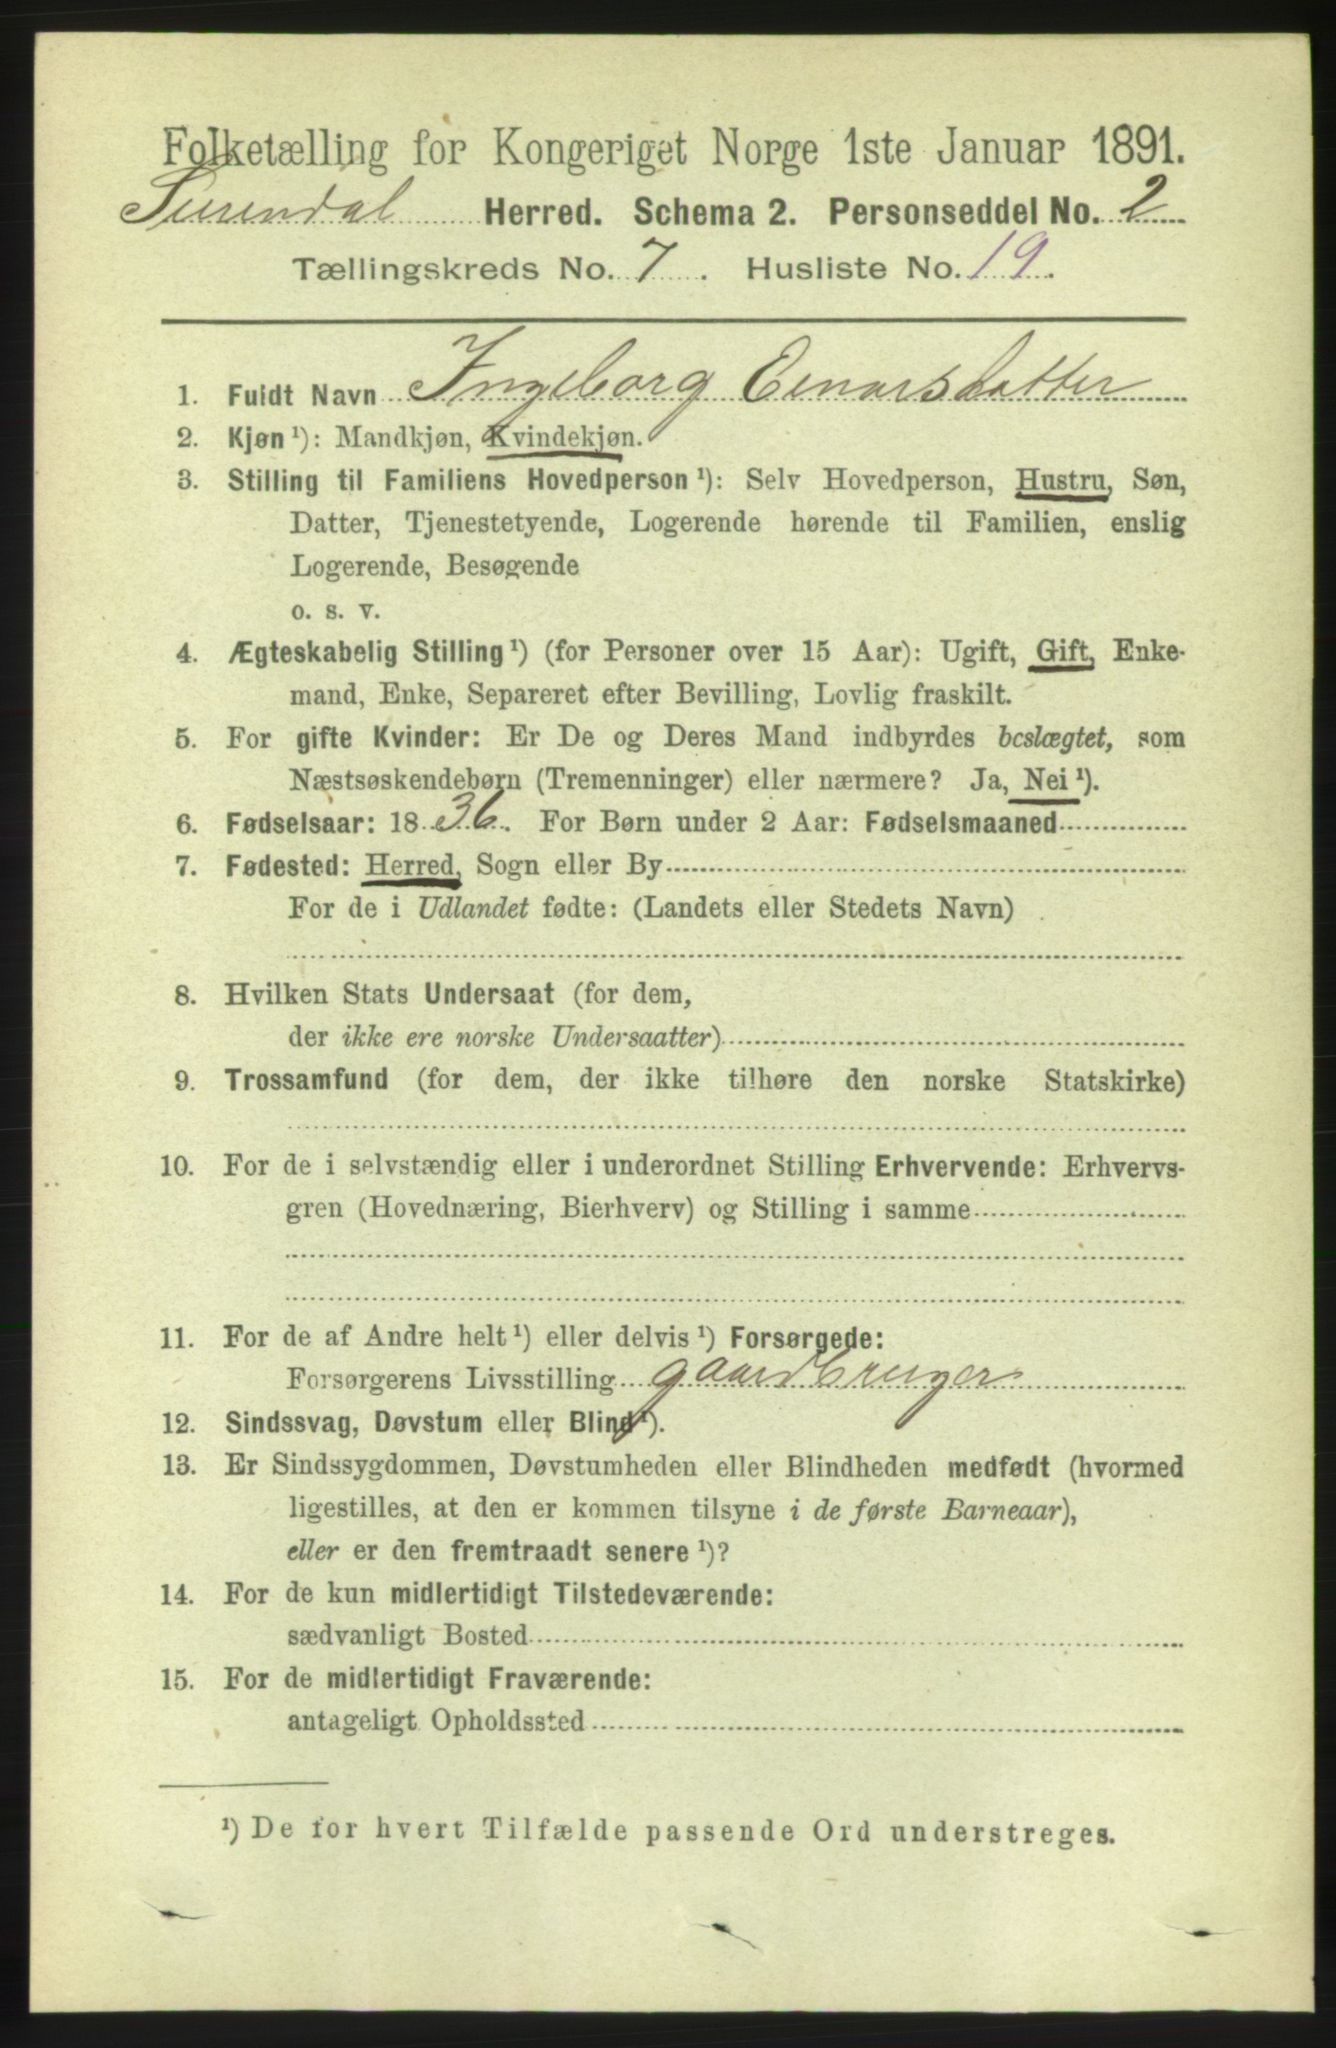 Folketælling for Kongeriget Norge 1ste Januar 1891.
Surendal Herred. Schema 2. Personseddel No. 2
Tællingskreds No. 7. Husliste No. 19.
1. Fuldt Navn Ingeborg Einarsdatter
2. Kjøn ¹): Mandkjøn, Kvindekjøn.
3. Stilling til Familiens Hovedperson ¹): Selv Hovedperson, Hustru, Søn,
Datter, Tjenestetyende, Logerende hørende til Familien, enslig
Logerende, Besøgende
o. s. v.
4. Ægteskabelig Stilling ¹) (for Personer over 15 Aar): Ugift, Gift, Enke-
mand, Enke, Separeret efter Bevilling, Lovlig fraskilt.
5. For gifte Kvinder: Er De og Deres Mand indbyrdes beslægtet, som
Næstsøskendebørn (Tremenninger) eller nærmere? Ja, Nei ¹).
6. Fødselsaar: 1836. For Børn under 2 Aar: Fødselsmaaned
7. Fødested: Herred, Sogn eller By
For de i Udlandet fødte: (Landets eller Stedets Navn)
8. Hvilken Stats Undersaat (for dem,
der ikke ere norske Undersaatter)
9. Trossamfund (for dem, der ikke tilhøre den norske Statskirke)
10. For de i selvstændig eller i underordnet Stilling Erhvervende: Erhvervs-
gren (Hovednæring, Bierhverv) og Stilling i samme
11. For de af Andre helt ¹) eller delvis ¹) Forsørgede:
Forsørgerens Livsstilling gaardbruger
12. Sindssvag, Døvstum eller Blind ¹).
13. Er Sindssygdommen, Døvstumheden eller Blindheden medfødt (hvormed
ligestilles, at den er kommen tilsyne i de første Barneaar),
eller er den fremtraadt senere ¹)?
14. For de kun midlertidigt Tilstedeværende:
sædvanligt Bosted
15. For de midlertidigt Fraværende:
antageligt Opholdssted
¹) De for hvert Tilfælde passende Ord understreges.